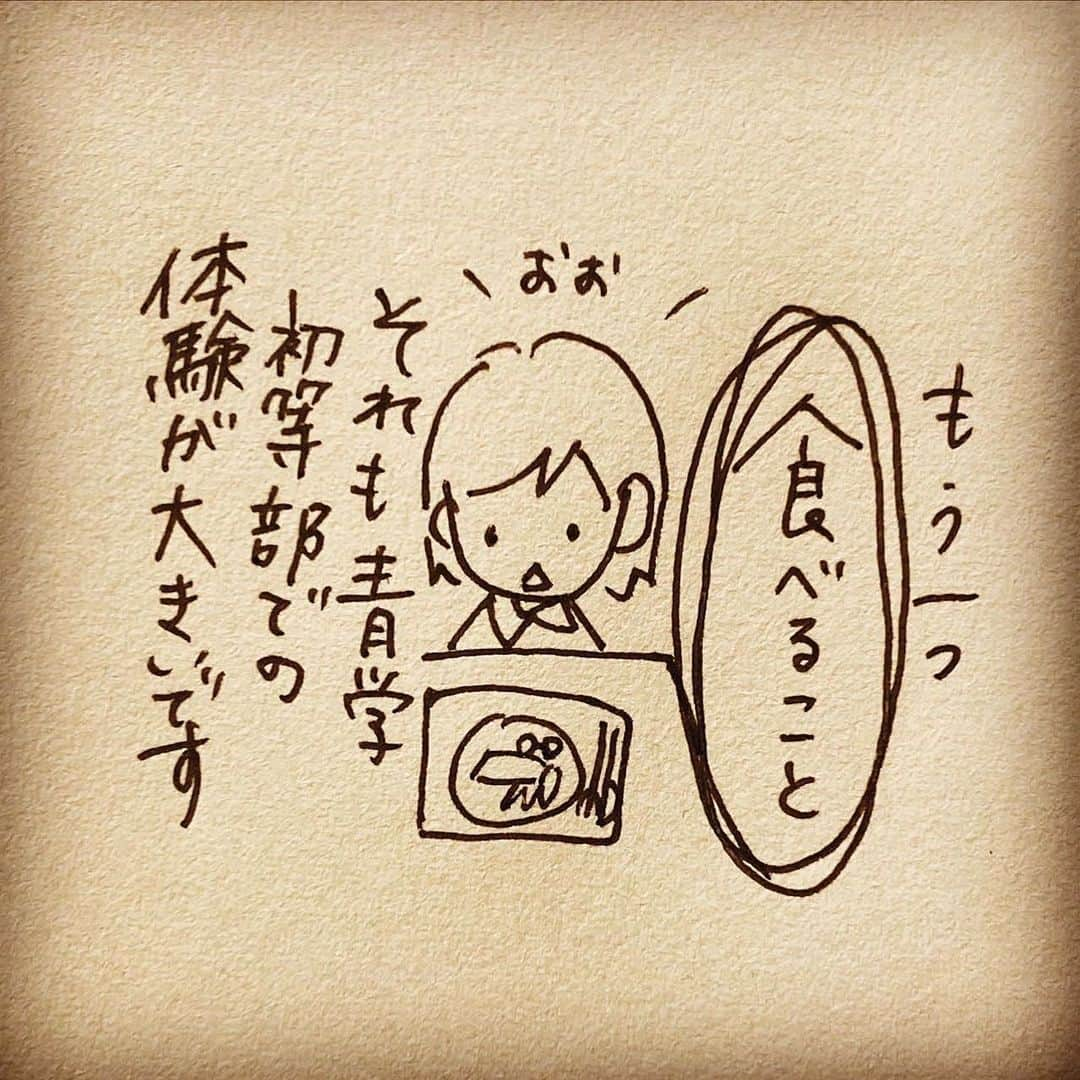 もう一つ
食べること
おお
それも青学
初等部での
体験が大きいです